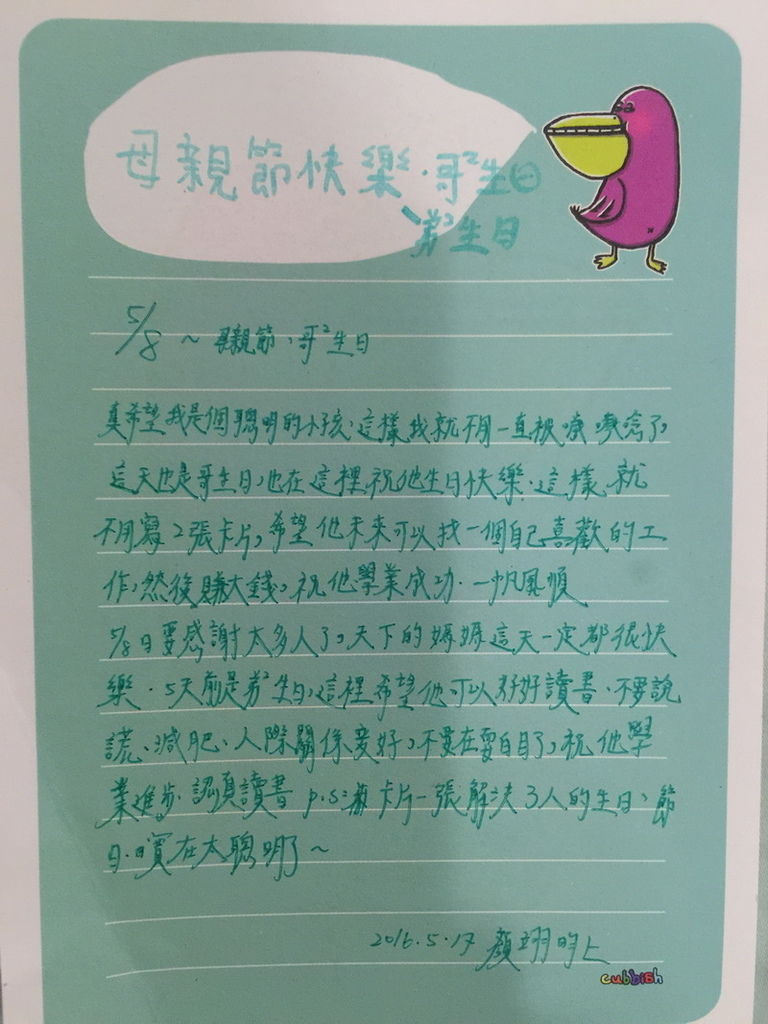 母親節快樂.哥²生日
弟²生日
5/8 ~ 母親節、哥²生日
真希望我是個聰明的小孩,這樣我就不用一直被唸了,
這天也是哥生日,也在這裡祝他生日快樂.這樣就
不用寫2張卡片,希望他未來可以找一個自己喜歡的工
作,然後賺大錢,祝他學業成功.一帆風順
5/8日要感謝太多人了,天下的媽媽這天一定都很快
樂.5天前是弟²生日,這裡希望他可以好好讀書、不要說
謊、減肥、人際關係變好,不要在耍白目了,祝他學
業進步.認真讀書 p.s: 卡片一張解決3人的生日、節
日.實在太聰明了~
2016.5.17 顏翊昀上
cubbish